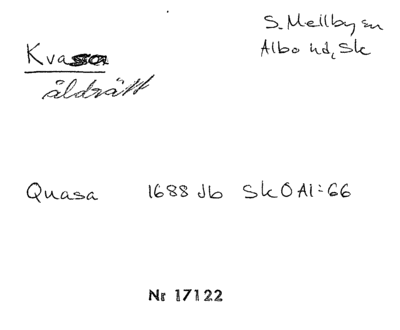 Kvasa
S. Mellby sn
Albo hd, Sk
åldrätt
Quasa 1688 Jb SkOAI:66
Nr 17122